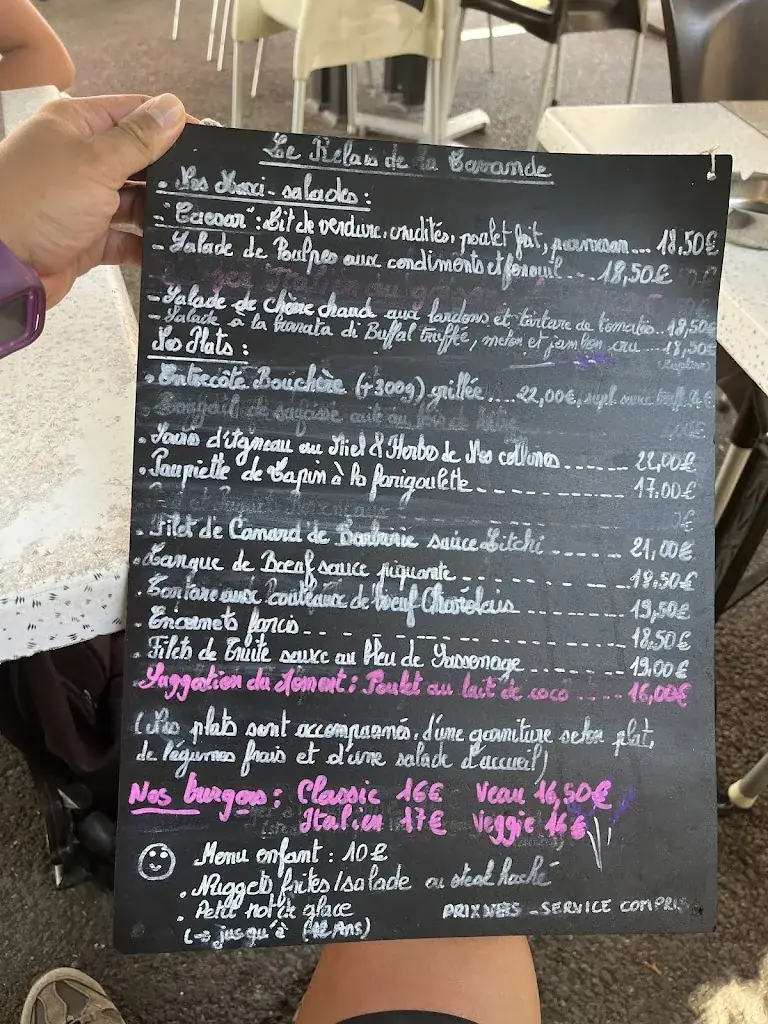 Le Relais de la Bavande
. Nos Maxi-salades :
- "Caesar" : Lit de verdure, crudités, poulet frit, parmesan... 18,50€
- Salade de Poulpes aux condiments et fenouil... 18,50€
- Salade de Chèvre chaud aux lardons et tartare de tomates.. 18,50€
- Salade à la burrata di Buffal truffée, melon et jambon cru ... 18,50€
Nos Plats :
. Entrecôte Bouchère (+300g) grillée.....22,00€, supl. sauce truffe
. Souris d'Agneau au Miel & Herbes de Nos collines...... 22,00€
. Paupiette de Lapin à la farigoulette ........ 17.00€
. Filet de Canard de Barbarie sauce Litchi ....... 21,00€
. Langue de Boeuf sauce piquante ........ 18.50€
. Tartare aux Couteaux de boeuf Charolais ........ 19,50€
. Encornets farcis ........ 18.50€
. Filets de Truite sauce au Bleu de Sassenage ........ 19.00€
. Suggestion du Moment : Poulet au lait de coco ..... 16,00€
(Nos plats sont accompagnés, d'une garniture selon plat,
de légumes frais et d'une salade d'accueil)
Nos burgers : Classic 16€ Veau 16,50€
Italien 17€ Veggie 16€
Menu enfant : 10€
. Nuggets frites/salade ou steak haché
. Petit pot de glace
(→ jusqu'à 12 Ans)
PRIX NETS - SERVICE COMPRIS